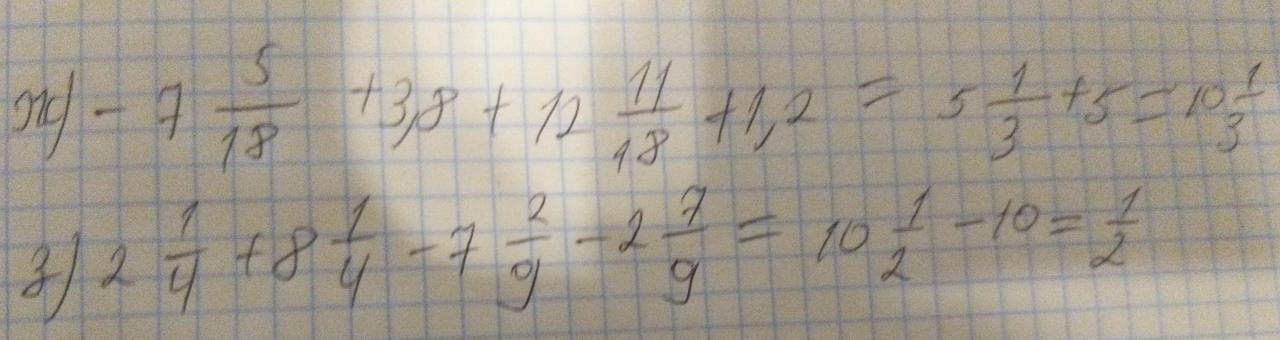 ж) - 7 5/18 + 3,8 + 12 11/18 + 1,2 = 5 1/3 + 5 = 10 1/3
з) 2 1/4 + 8 1/4 - 7 2/9 - 2 7/9 = 10 1/2 - 10 = 1/2